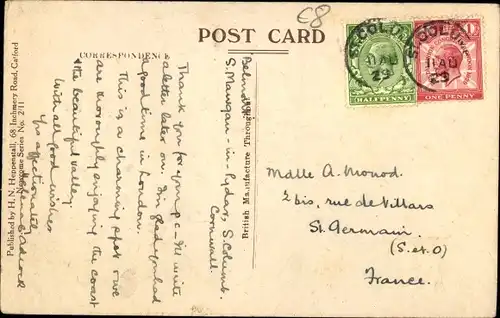 C8
POST CARD
CORRESPONDENCE
S. COLUMB
11 AU
29
HALFPENNY
S. COLUMB
11 AU
29
ONE PENNY
S. Mawgan-in-Pydar, S. Columb.
Cornwall.
Thank you for your p.c. - I'll write
a letter later on. I'm glad you had
a good time in London.
This is a charming spot & we
are thoroughly enjoying the coast
& the beautiful valley.
With all good wishes
Yrs affectionately
British Manufacture Throughout
Published by H. N. Heppenstall, 68 Inchmery Road, Catford
Newhome Series No. 2/11
Mdlle A. Monod.
2 bis, rue de Villars
St. Germain
(S. et O)
France.